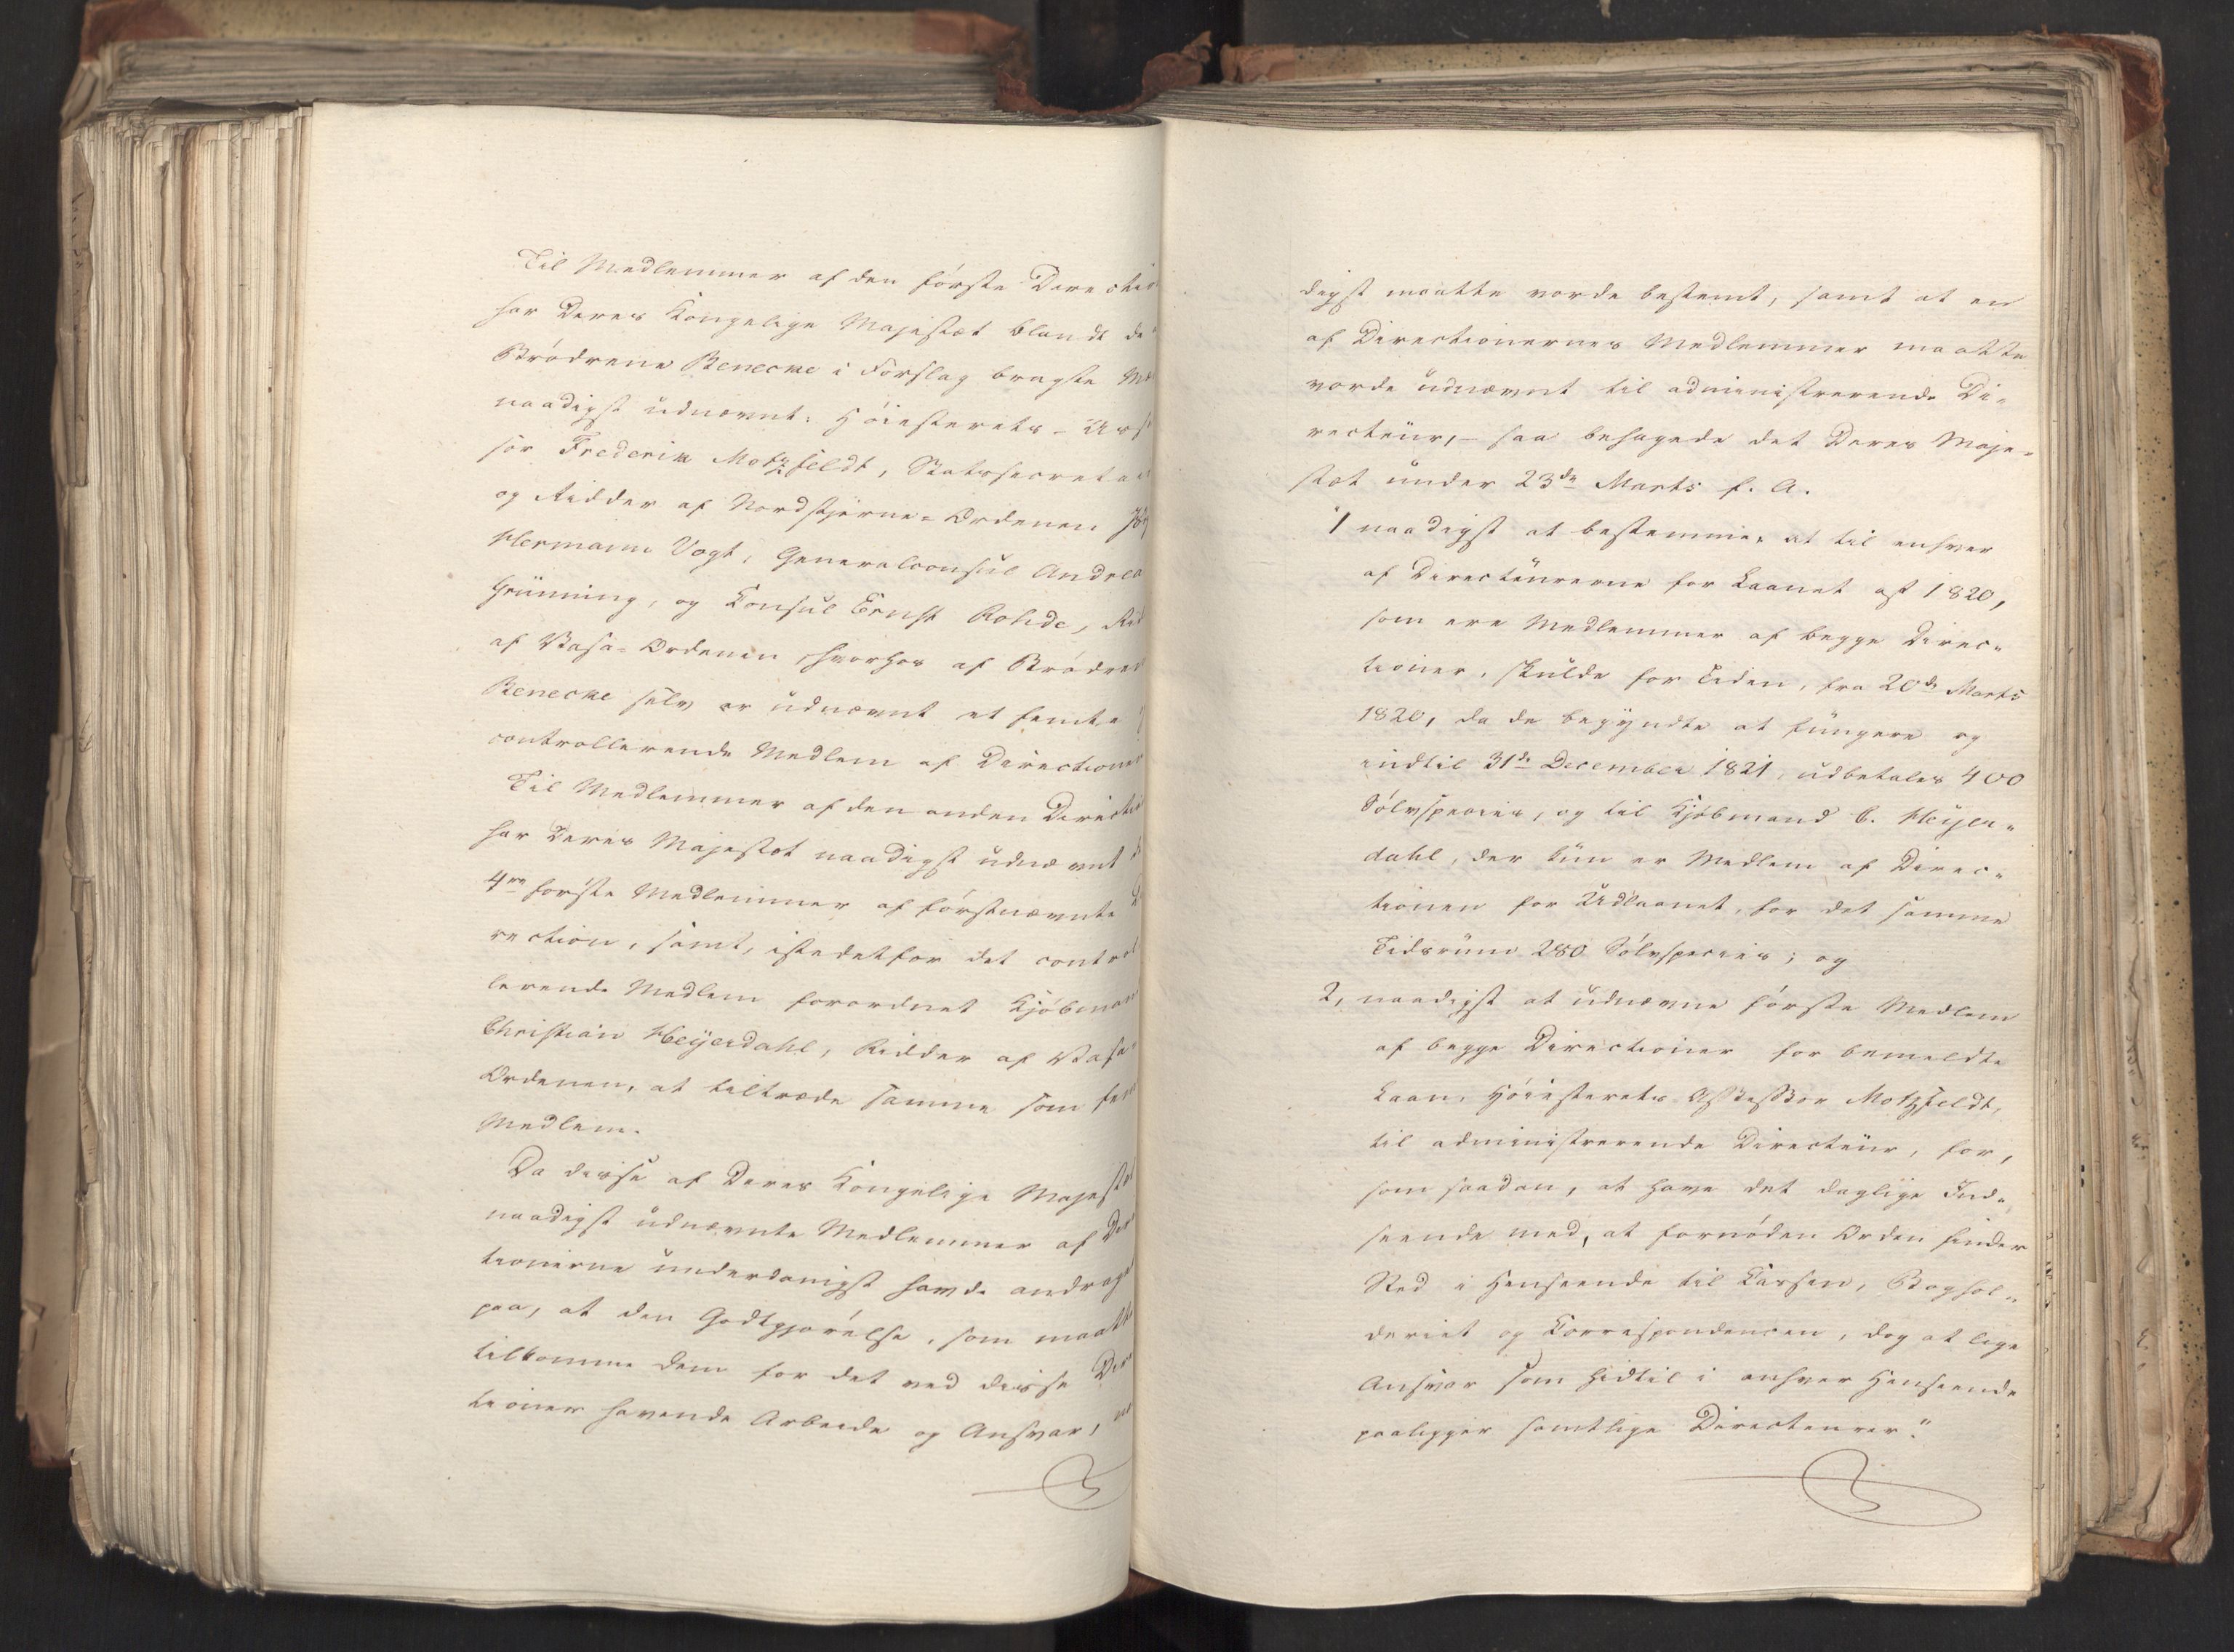 Til Medlemmer af den første Directio
har Deres Kongelige Majestæt blandt de
Brødrene Benecke i Forslag bragte Mæ
naadigst udnævnt: Høiesterets-Asse
sor Frederik Motzfeldt, Statssecretair
og Ridder af Nordstjerne-Ordenen Jör
Hermann Vogt, Generalconsul Andrea
Grünning, og Consul Ernst Rohde, Rid
af Vasa-Ordenen, hvorhos af Brødren
Benecke selv er udnævnt et femte
controllerende Medlem af Directionen
Til Medlemmer af den anden Directio
har Deres Majestæt naadigst udnævnt d
4re første Medlemmer af førstnævnte D
rection, samt, istedetfor det control
lerende Medlem forordnet Kjøbman
Christian Heyerdahl, Ridder af Vasa-
Ordenen, at tiltræde samme som fem
Medlem.
Da disse af Deres Kongelige Majestæt
naadigst udnævnte Medlemmer af Dir
tionerne underdanigst havde andraget
paa, at den Godtgjørelse, som maatte
tilkomme dem for det ved disse Dir
tioner havende Arbeide og Ansvar,
digst maatte vorde bestemt, samt at en
af Directionernes Medlemmer maatte
vorde udnævnt til administrerende Di-
recteur, – saa behagede det Deres Maje-
stæt under 23de Marts f. A.
"1 naadigst at bestemme, at til enhver
af Directeurerne for Laanet af 1820,
som ere Medlemmer af begge Direc-
tioner, skulde for Tiden, fra 20de Marts
1820, da de begyndte at fungere og
indtil 31de December 1821, udbetales 400
Sølvspecies, og til Kjøbmand C. Heyer-
dahl, der kun er Medlem af Direc-
tionen for Udlaanet, for det samme
Tidsrum 280 Sølvspecies; og
2, naadigst at udnævne første Medlem
af begge Directioner for bemeldte
Laan, Høiesterets Assessor Motzfeldt,
til administrerende Directeur, for,
som saadan, at have det daglige Ind-
seende med, at fornøden Orden finder
Sted i Henseende til Cassen, Boghol-
deriet og Correspondencen, dog at lige
Ansvar som hidtil i enhver Henseende
paaligger samtlige Directeurer."